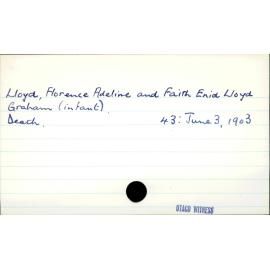 Lloyd, Florence Adeline and Faith Enid Lloyd
Graham (infant)
Death. 43: June 3, 1903
OTAGO WITNESS